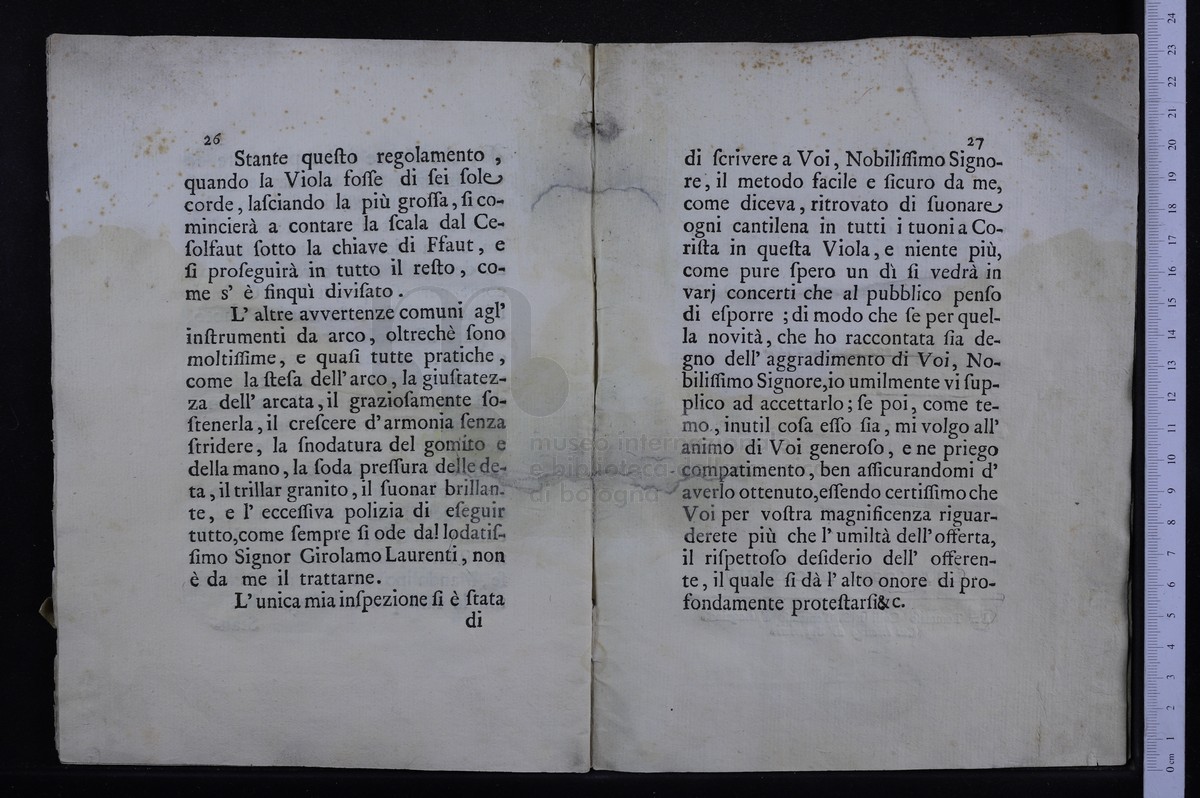 26
Stante queſto regolamento ,
quando la Viola foſſe di ſei ſole
corde, laſciando la più groſſa, ſi co-
mincierà a contare la ſcala dal Ce-
ſolfaut ſotto la chiave di Ffaut, e
ſi proſeguirà in tutto il reſto, co-
me s' è finquì diviſato.
L' altre avvertenze comuni agl'
inſtrumenti da arco, oltrechè ſono
moltiſſime, e quaſi tutte pratiche,
come la ſteſa dell' arco, la giuſtatez-
za dell' arcata, il grazioſamente ſo-
ſtenerla, il creſcere d'armonia ſenza
ſtridere, la ſnodatura del gomito e
della mano, la ſoda preſſura delle de-
ta, il trillar granito, il ſuonar brillan-
te, e l' ecceſſiva polizia di eſeguir
tutto,come ſempre ſi ode dal lodatiſ-
ſimo Signor Girolamo Laurenti, non
è da me il trattarne.
L' unica mia inſpezione ſi è ſtata
di
27
di ſcrivere a Voi, Nobiliſſimo Signo-
re, il metodo facile e ſicuro da me,
come diceva, ritrovato di ſuonare
ogni cantilena in tutti i tuoni a Co-
riſta in queſta Viola, e niente più,
come pure ſpero un dì ſi vedrà in
varj concerti che al pubblico penſo
di eſporre ; di modo che ſe per quel-
la novità, che ho raccontata ſia de-
gno dell' aggradimento di Voi, No-
biliſſimo Signore,io umilmente vi ſup-
plico ad accettarlo; ſe poi, come te-
mo, inutil coſa eſſo ſia, mi volgo all'
animo di Voi generoſo, e ne priego
compatimento, ben aſſicurandomi d'
averlo ottenuto,eſſendo certiſſimo che
Voi per voſtra magnificenza riguar-
derete più che l' umiltà dell' offerta,
il riſpettoſo deſiderio dell' offeren-
te, il quale ſi dà l' alto onore di pro-
fondamente proteſtarſi&c.
museo internazionale
e biblioteca
di bologna
24
23
22
21
20
19
18
17
16
15
14
13
12
11
10
9
8
7
6
5
4
3
2
1
0 cm